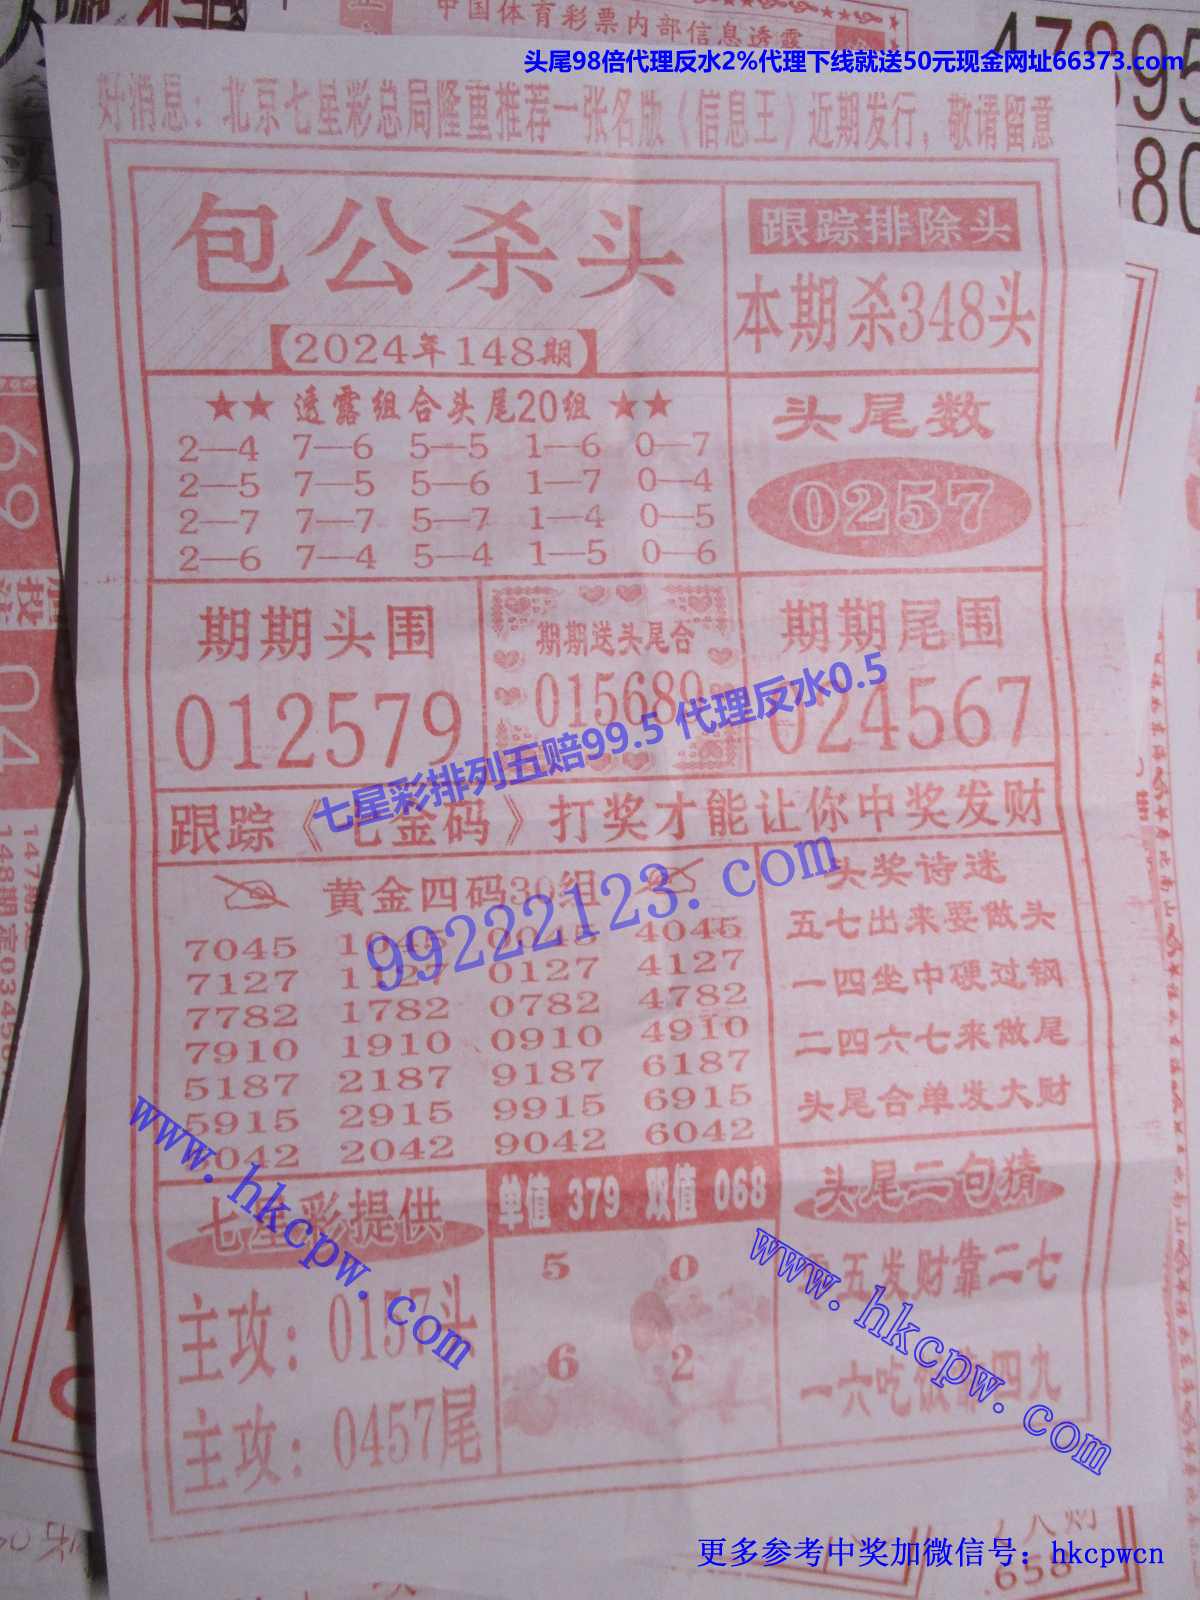 中国体育彩票内部信息透露
头尾98倍代理反水2%代理下线就送50元现金网址66373.com
好消息：北京七星彩总局隆重推荐一张名版《信息王》近期发行，敬请留意
包公杀头
【2024年148期】
跟踪排除头
本期杀348头
★★ 透露组合头尾20组 ★★
2—4 7—6 5—5 1—6 0—7
2—5 7—5 5—6 1—7 0—4
2—7 7—7 5—7 1—4 0—5
2—6 7—4 5—4 1—5 0—6
头尾数
0257
期期头围
012579
期期送头尾合
015689
期期尾围
024567
七星彩排列五赔99.5 代理反水0.5
跟踪《七金码》打奖才能让你中奖发财
黄金四码30组
99222123.com
7045 1045 0045 4045
7127 1127 0127 4127
7782 1782 0782 4782
7910 1910 0910 4910
5187 2187 9187 6187
5915 2915 9915 6915
5042 2042 9042 6042
头奖诗迷
五七出来要做头
一四坐中硬过钢
二四六七来做尾
头尾合单发大财
www.hkcpw.com
七星彩提供
主攻：0157头
主攻：0457尾
单值 379 双值 068
5 0
6 2
头尾二句猜
五发财靠二七
一六吃饭靠四九
www.hkcpw.com
更多参考中奖加微信号：hkcpwcn
.658